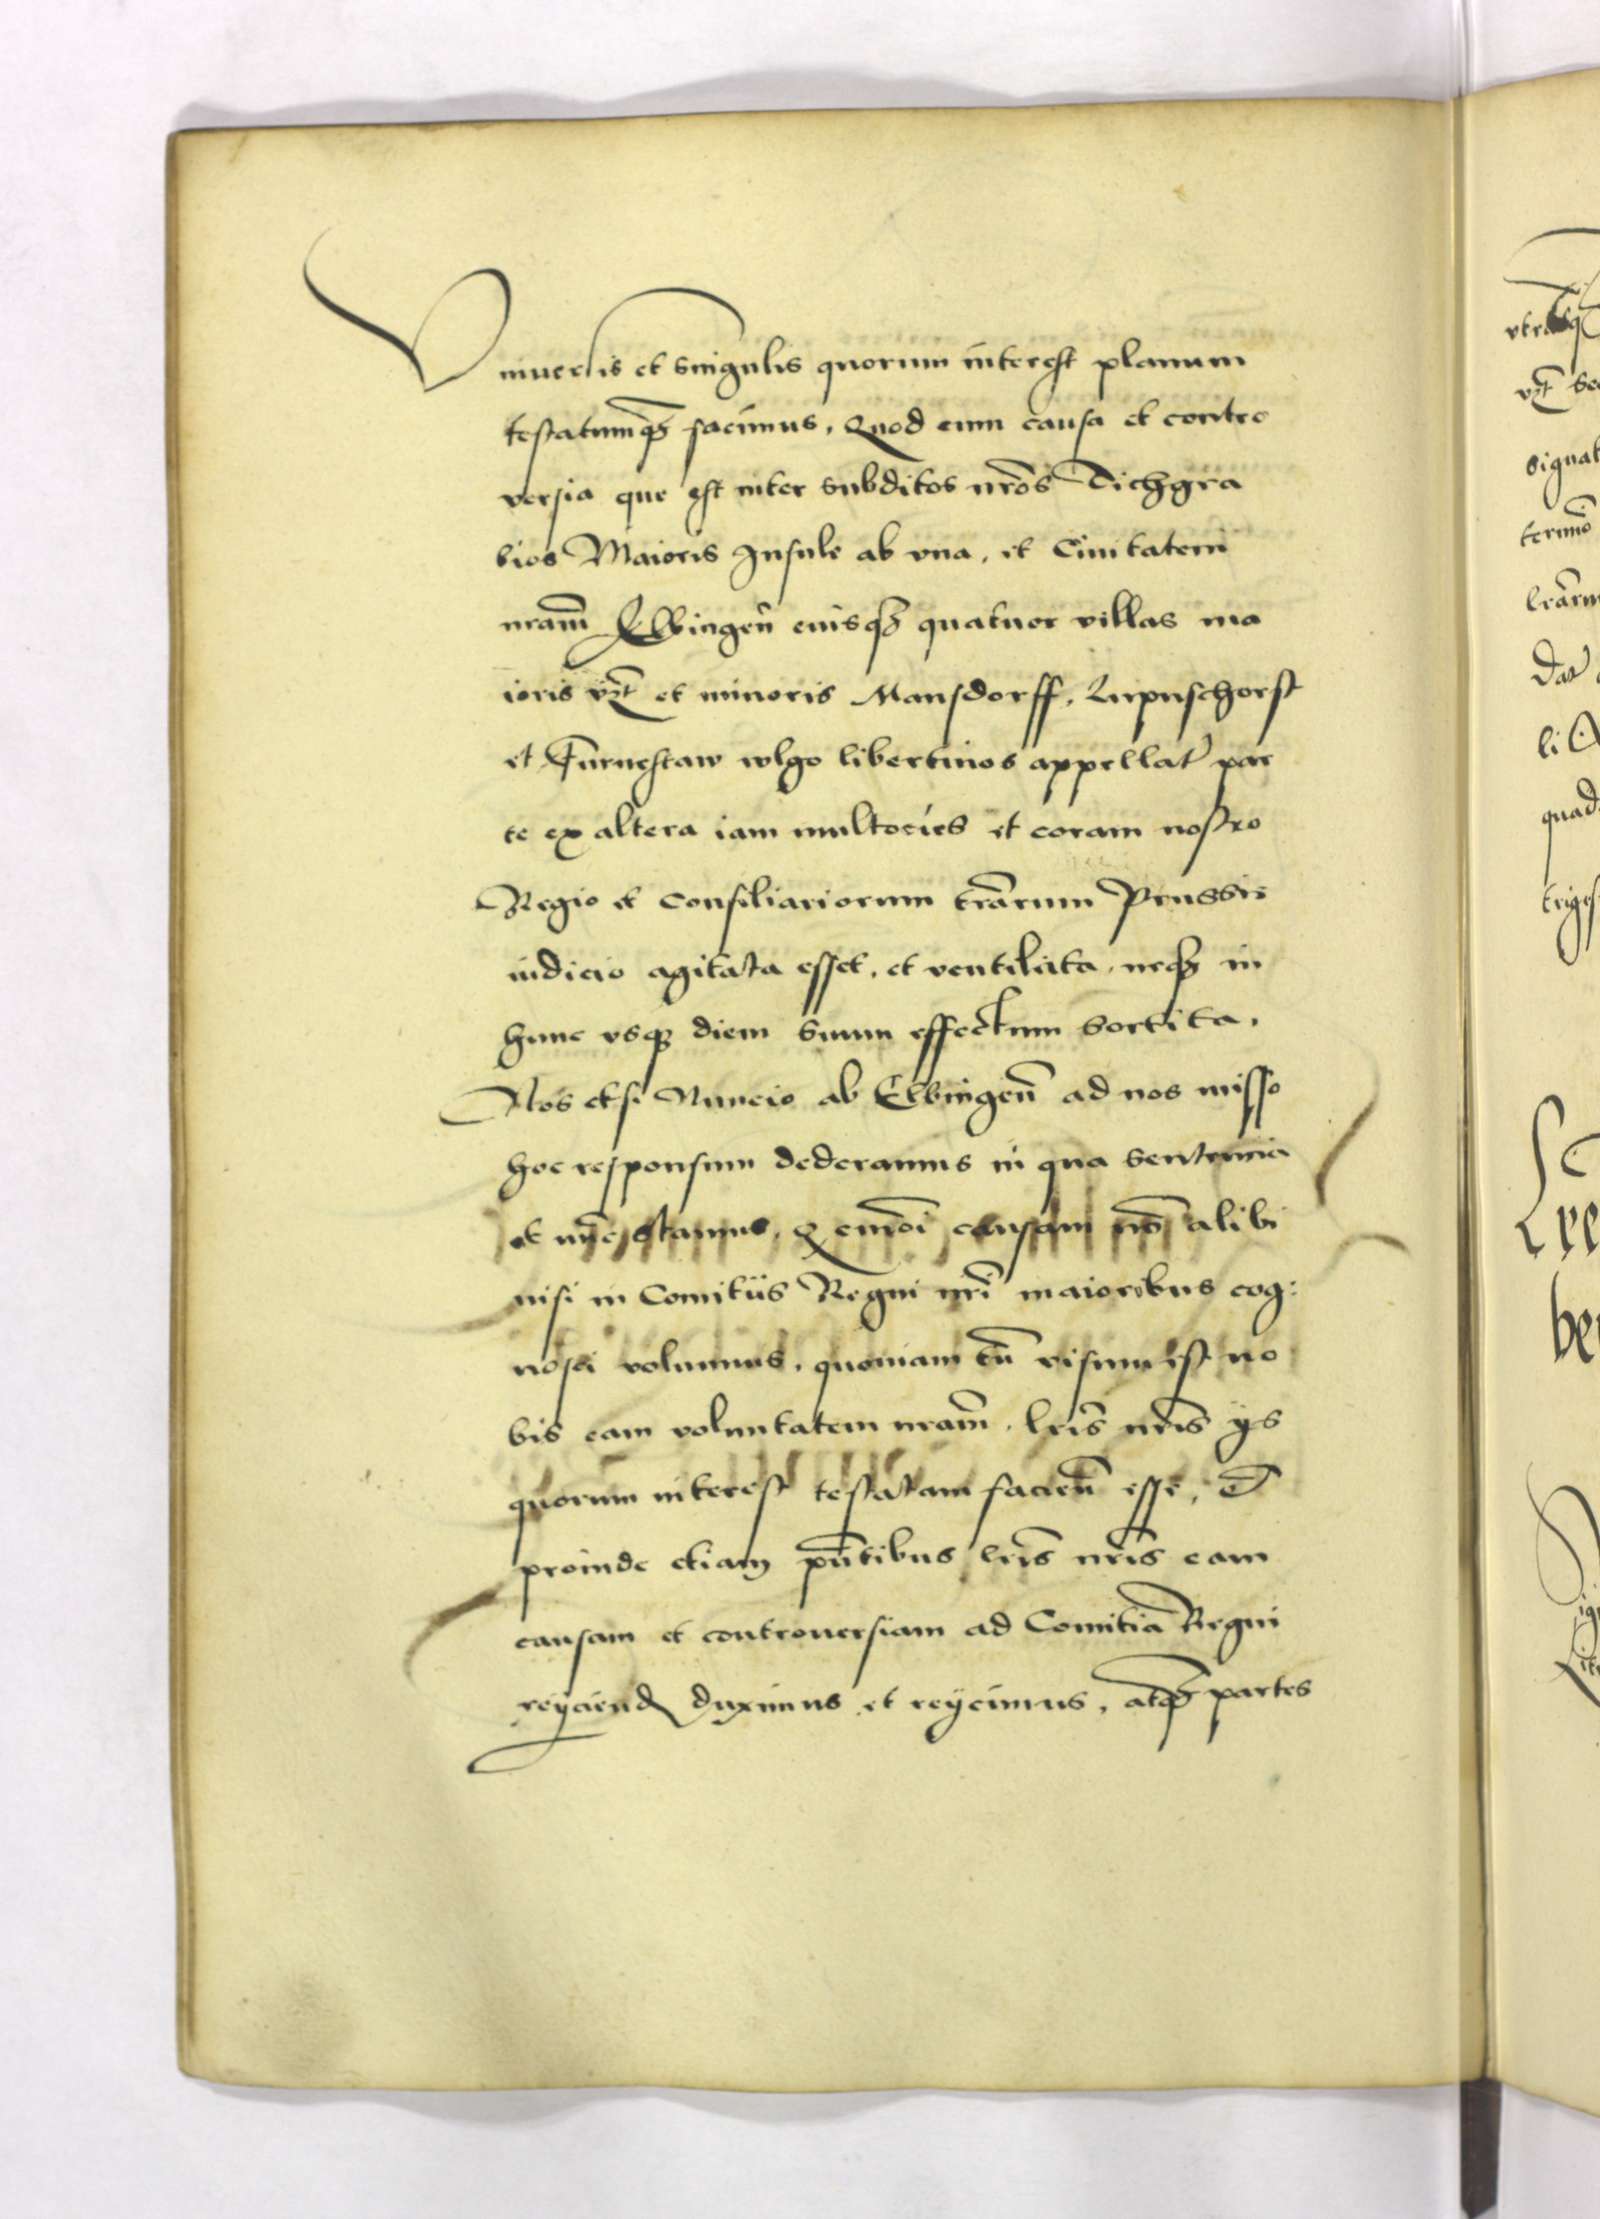 Vniuersis et singulis quorum interest planum
testatumq₃ facimus, Quod cum causa et contro
versia que est inter subditos nr̃os Tichgra
bios Maioris Insule ab vna, et Ciuitatem
nram̃ Elbingeñ eiusq₃ quatuor villas ma
ioris vꝫt et minoris Mansdorff, Lupuschorst
et Furnestaw wlgo libertinos appellat' par
te ex altera iam multocies et coram nostro
Regio et Consiliariorum trãrum Prussie
iudicio agitata esset, et ventilata, neq₃ in
hunc vsq₃ diem suum effectum sortita,
Nos etsi Nuncio ab Elbingeñ ad nos misso
hoc responsum dederamus in qua sententia
et nũc stamus, Q eiusmõi causam nõ alibi
nisi in Comitiis Regni nr̃i maioribus cog:
nosci volumus, quoniam tñ visum est no
bis eam voluntatem nram̃, lr̃is nr̃is ijs
quorum interest testatam facieñ esse,
proinde etiam pñtibus lr̃is nr̃is eam
causam et controuersiam ad Comitia Regni
reijciend duximus et reijcimus, atq₃ partes
vtrasq₃
vꝫt
signat
termĩo
Dat
li
quad